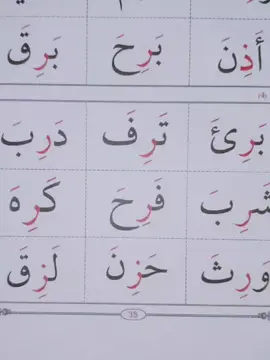 أَذِنَ بَرِحَ بَرِقَ
(4)
بَرِئَ تَرِفَ دَرِبَ
شَرِبَ فَرِحَ كَرِهَ
وَرِثَ حَزِنَ لَزِقَ
35